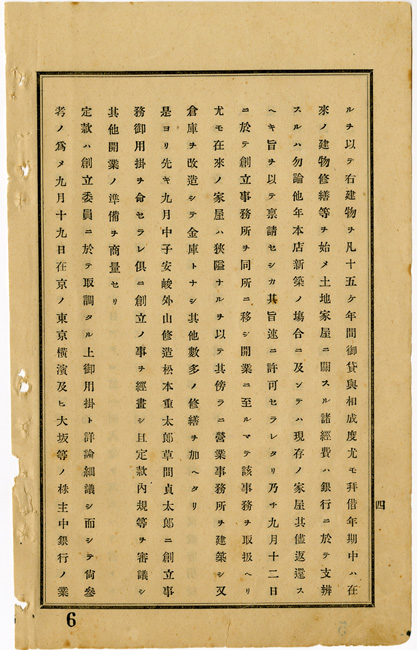 ルヲ以テ右建物ヲ凡十五ケ年間御貸與相成度尤モ拜借年期中ハ在
來ノ建物修繕等ヲ始メ土地家屋ニ關スル諸經費ハ銀行ニ於テ支辨
スルハ勿論他年本店新築ノ塲合ニ及ンテハ現存ノ家屋其儘返還ス
ヘキ旨ヲ以テ稟請セシカ其旨速ニ許可セラレタリ乃チ九月十二日
ニ於テ創立事務所ヲ同所ニ移シ開業ニ至ルマテ該事務ヲ取扱ヘリ
尤モ在來ノ家屋ハ狹隘ナルヲ以テ其傍ラニ營業事務所ヲ建築シ又
倉庫ヲ改造シテ金庫トナシ其他數多ノ修繕ヲ加ヘタリ
是ヨリ先キ九月中子安峻外山修造松本重太郎草間貞太郎ニ創立事
務御用掛ヲ命セラレ俱ニ創立ノ事ヲ經畫シ且定款內規等ヲ審議シ
其他開業ノ準備ヲ商量セリ
定款ハ創立委員ニ於テ取調タル上御用掛ト詳論細議シ而シテ尙參
考ノ爲メ九月十九日在京ノ東京橫濱及ヒ大坂等ノ株主中銀行ノ業
四
6